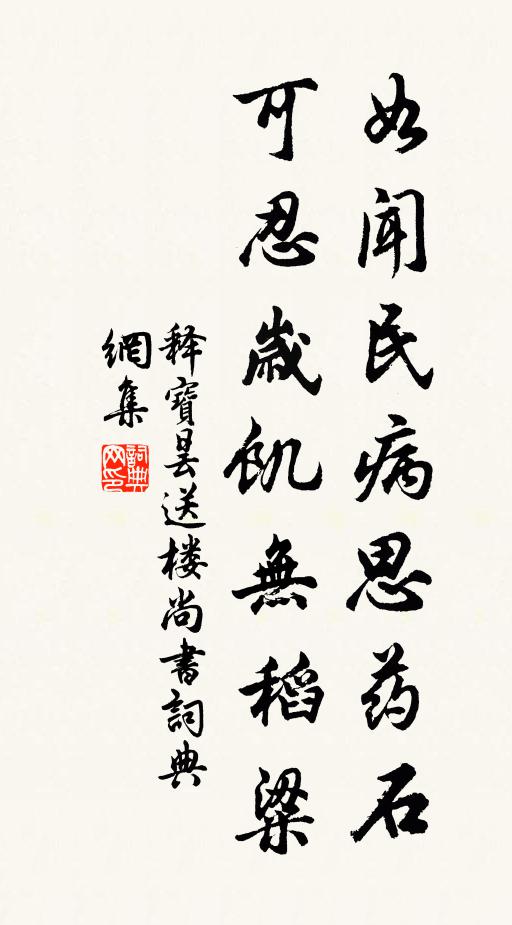 如闻民病思药石
可忍歲飢無稻粱
释寶昙送楼尚書詞典
網集
詞典
网印